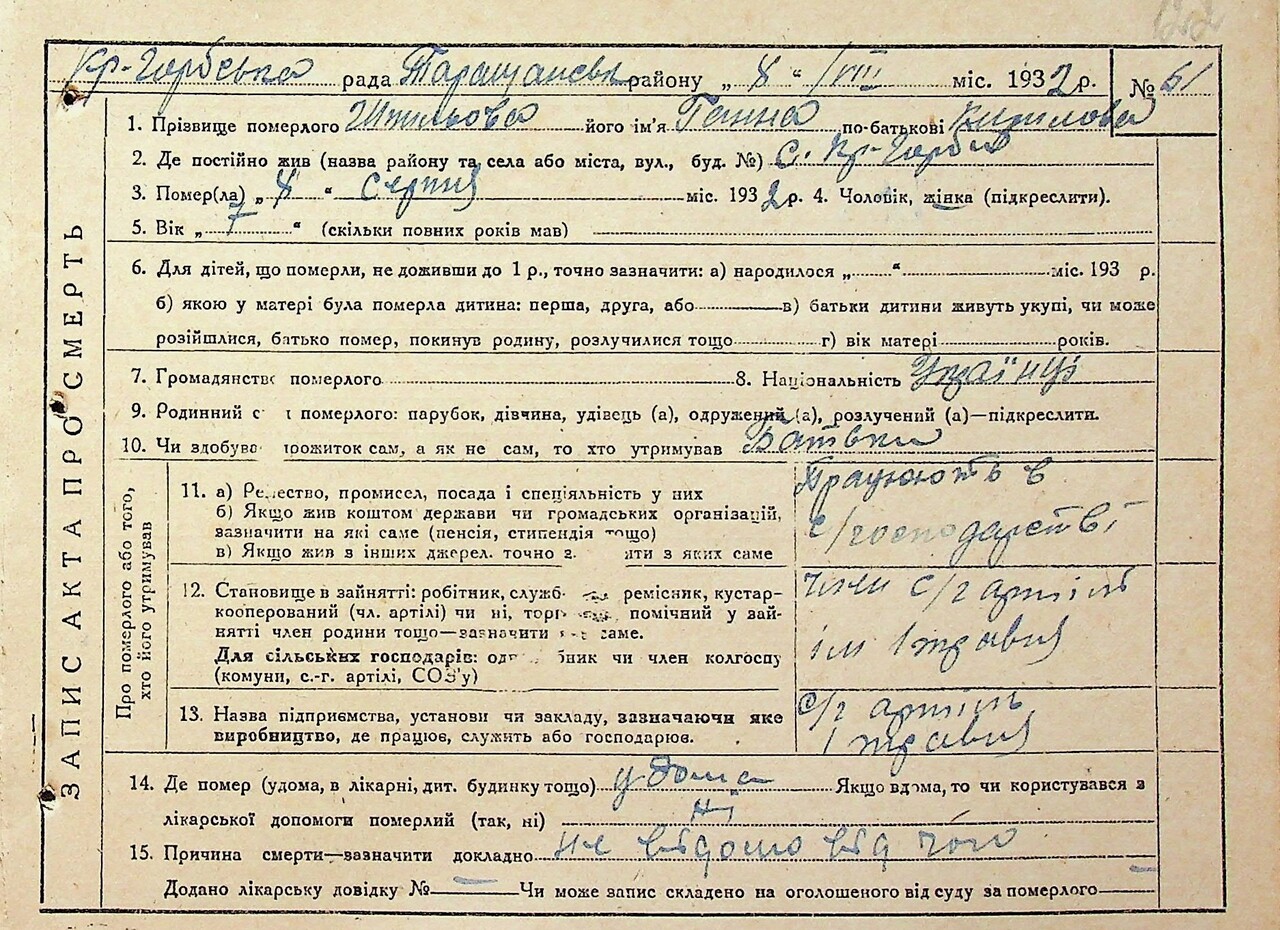 122
Кр-Горбівська рада Таращанськ району „ 8 “ /VIII міс. 1932 р. № 61
1. Прізвище померлого Шпильова його ім'я Ганна по-батькові
2. Де постійно жив (назва району та села або міста, вул., буд. №) с. Кр-Горби
3. Помер(ла) „ 8 “ Серпня міс. 1932 р. 4. Чоловік, жінка (підкреслити).
5. Вік „ 7 “ (скільки повних років мав)
6. Для дітей, що померли, не доживши до 1 р., точно зазначити: а) народилося „ “ міс. 193 р.
б) якою у матері була померла дитина: перша, друга, або в) батьки дитини живуть укупі, чи може
розійшлися, батько помер, покинув родину, розлучилися тощо г) вік матері років.
7. Громадянств померлого 8. Національність Українці
9. Родинний с померлого: парубок, дівчина, удівець (а), одружений (а), розлучений (а)—підкреслити.
10. Чи здобував прожиток сам, а як не сам, то хто утримував Батьки
ЗАПИС АКТА ПРО СМЕРТЬ
Про померлого або того,
хто його утримував
11. а) Ремество, промисел, посада і спеціяльність у них
б) Якщо жив коштом держави чи громадських організацій,
зазначити на які саме (пенсія, стипендія тощо)
в) Якщо жив з інших джерел, точно з яти з яких саме
Працюють в
с/господарстві
12. Становище в зайнятті: робітник, служб ремісник, кустар-
кооперований (чл. артілі) чи ні, торг помічний у зай-
нятті член родини тощо—зазначити саме.
Для сільських господарів: од бник чи член колгоспу
(комуни, с.-г. артілі, СОЗ'у)
член с/г артіл
ім 1 травня
13. Назва підприємства, установи чи закладу, зазначаючи яке
виробництво, де працює, служить або господарює.
с/г артіль
1 травня
14. Де помер (удома, в лікарні, дит. будинку тощо) удома Якщо вдома, то чи користувався з
лікарської допомоги померлий (так, ні) ні
15. Причина смерти—зазначити докладно не відомо від чого
Додано лікарську довідку № — Чи може запис складено на оголошеного від суду за померлого —